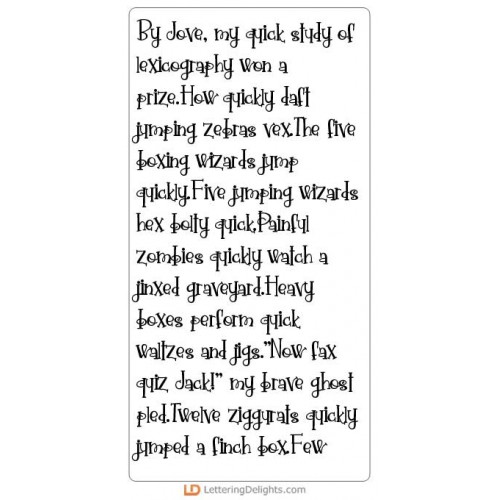 By Jove, my quick study of
lexicography won a
prize.How quickly daft
jumping zebras vex.The five
boxing wizards jump
quickly.Five jumping wizards
hex bolty quick.Painful
zombies quickly watch a
jinxed graveyard.Heavy
boxes perform quick
waltzes and jigs."Now fax
quiz Jack!" my brave ghost
pled.Twelve ziggurats quickly
jumped a finch box.Few
LD LetteringDelights.com